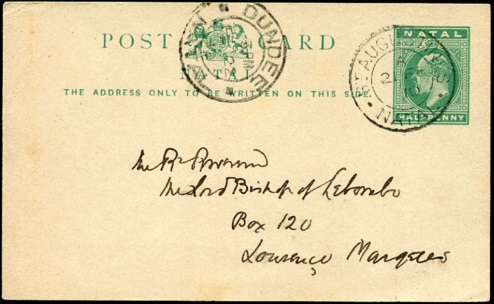 POST CARD
NATAL
THE ADDRESS ONLY TO BE WRITTEN ON THIS SIDE.
DUNDEE
NATAL
ST AUGUSTINES
NATAL
NATAL
HALFPENNY
The Rt Reverend
The Lord Bishop of Lebombo
Box 120
Lourenço Marques